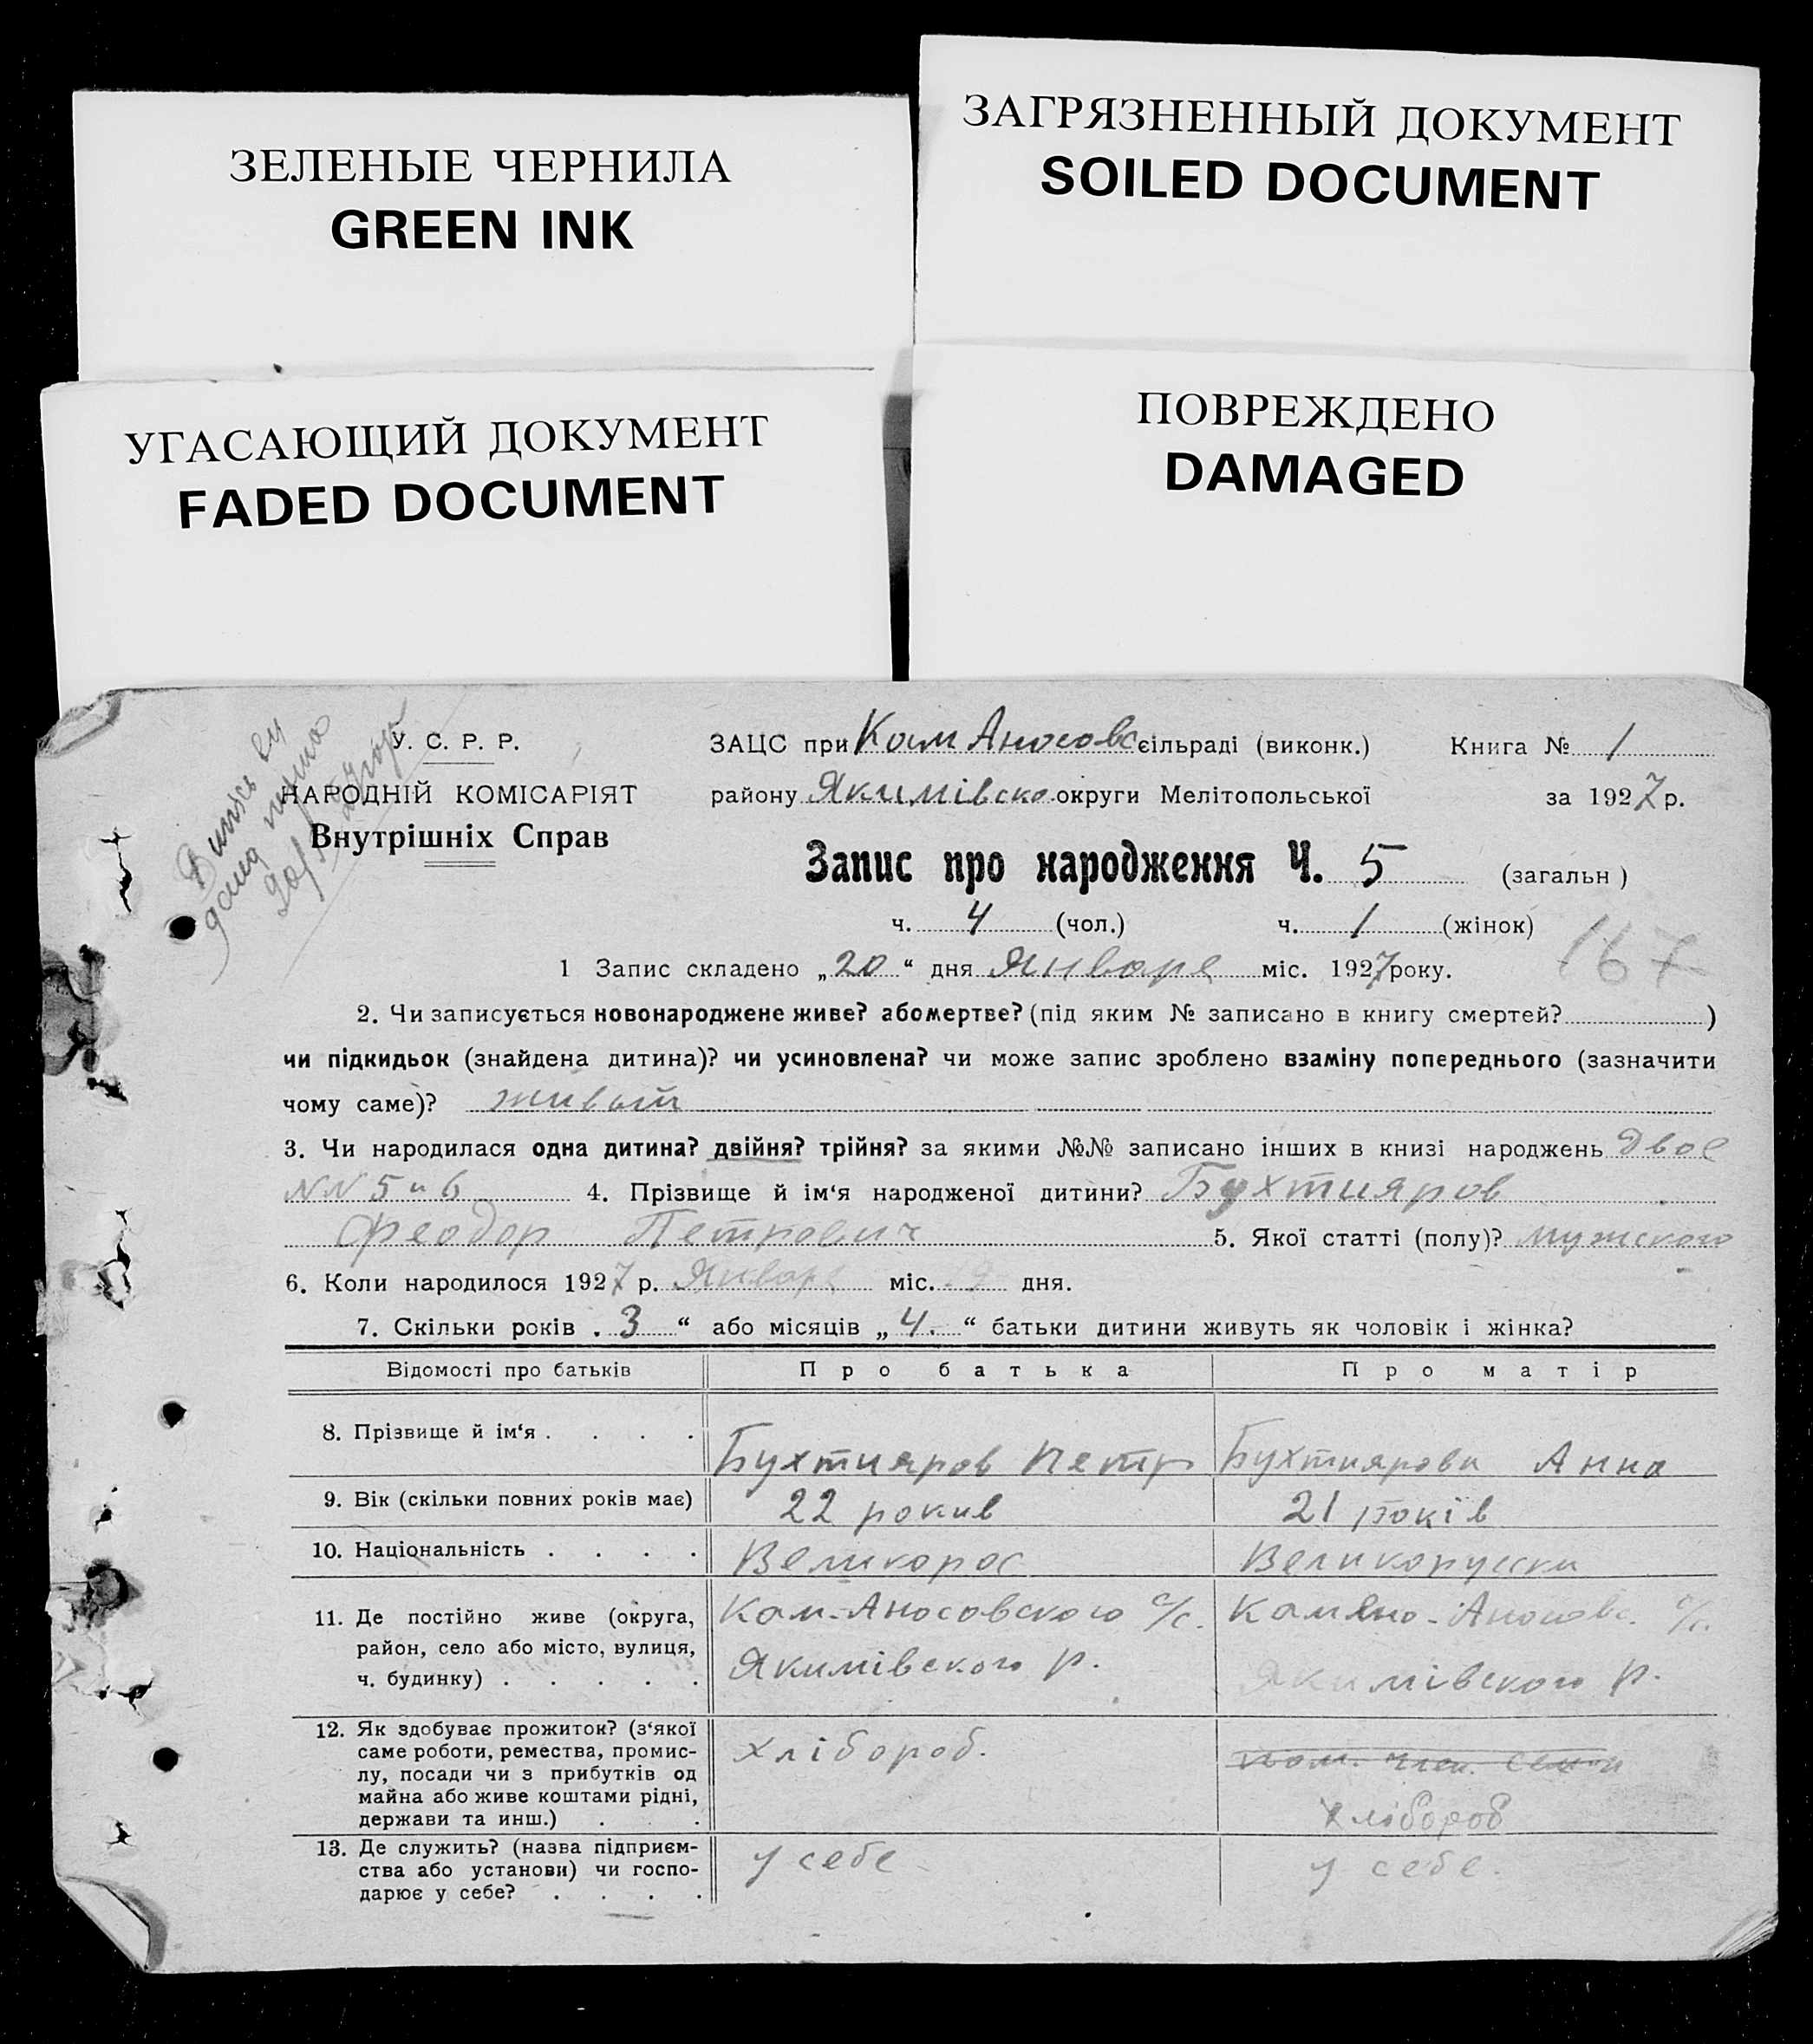 ЗЕЛЕНЫЕ ЧЕРНИЛА
GREEN INK
ЗАГРЯЗНЕННЫЙ ДОКУМЕНТ
SOILED DOCUMENT
УГАСАЮЩИЙ ДОКУМЕНТ
FADED DOCUMENT
ПОВРЕЖДЕНО
DAMAGED
У. С. Р. Р.
НАРОДНІЙ КОМІСАРІЯТ
Внутрішніх Справ
ЗАЦС при Кам Аносовс сільраді (виконк.) Книга № 1
району Якимівско округи Мелітопольської за 1927 р.
Запис про народження Ч. 5 (загальн )
ч. 4 (чол.) ч. 1 (жінок)
167
1 Запис складено „20“ дня Января міс. 1927 року.
2. Чи записується новонароджене живе? або мертве? (під яким № записано в книгу смертей? )
чи підкидьок (знайдена дитина)? чи усиновлена? чи може запис зроблено взаміну попереднього (зазначити
чому саме)? живый
3. Чи народилася одна дитина? двійня? трійня? за якими №№ записано інших в книзі народжень Двое
NN 5 и 6 4. Прізвище й ім‘я народженої дитини? Бухтияров
Феодор Петрович 5. Якої статті (полу)? мужского
6. Коли народилося 1927 р. Января міс. дня.
7. Скільки років . 3 “ або місяців „ 4. “ батьки дитини живуть як чоловік і жінка?
Відомості про батьків Про батька Про матір
8. Прізвище й ім‘я . . . . Бухтияров Петр Бухтиярова Анна
9. Вік (скільки повних років має) 22 рокив 21 років
10. Національність . . . . Великорос Великоруска
11. Де постійно живе (округа, Кам-Аносовского с/с. Камяно-Аносовс. с/с.
район, село або місто, вулиця, Якимівского р. Якимівского р.
ч. будинку) . . . . .
12. Як здобуває прожиток? (з‘якої хлібороб.
саме роботи, ремества, промис-
лу, посади чи з прибутків од пом. член. семьи
майна або живе коштами рідні,
держави та инш.) . . . хлібороб
13. Де служить? (назва підприєм- у себе у себе.
ства або установи) чи госпо-
дарює у себе? . . . .